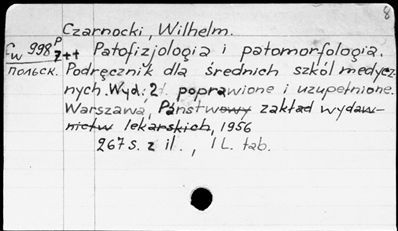 8
Czarnocki, Wilhelm.
Cw 998 p
7++ Patofizjologia i patomorfologia.
польск. Podręcznik dla średnich szkół medycz-
nych. Wyd. 2. poprawione i uzupełnione.
Warszawa, Państwowy zakład wydaw-
nictw lekarskich, 1956
267 s. z il., 1 L. tab.